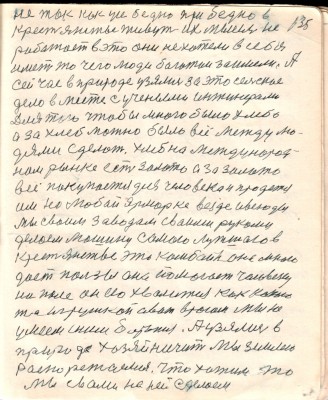 не так как уж бедно при бедно в
крестянстве живут их мысля не
работает в это они не хотели в себя
имет то чего люди богатыи заимели. А
сейчас в природе узялися за это селское
дело в месте с учеными инжинерами
для того чтобы много было хлеба
а за хлеб можно было всё между лю-
дями сделат. Хлеб на международ-
ном рынке ест золото а за золото
всё покупается для человека и продается
им на любой ярморке везде и всюды
мы своим заводам своими руками
делаем машину самого лутшаго в
крестянстве это камбайн он много
дает ползы она помогает человеку
на поле он ею хвалится как
той игрушкой а вот взяли мы не
умеем с ним быт. А узялися в
природе хозяйничит мы землею
распоряжаемся, что хотим то
мы с вами на ней сделаем
135